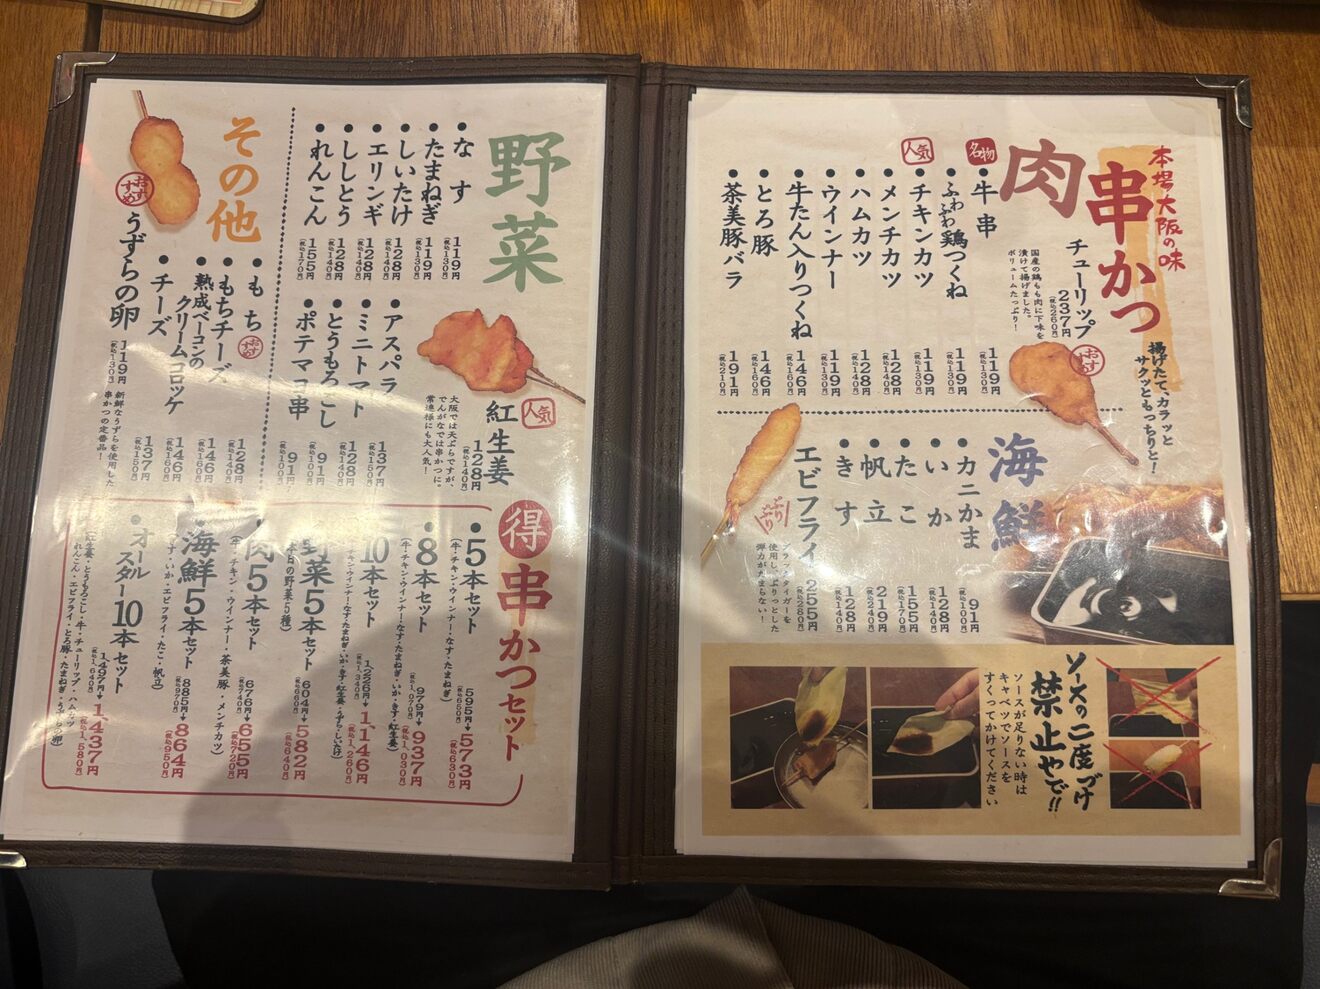 本場大阪の味
串かつ
揚げたて、カラッと
サクッともっちりと!
肉
チューリップ
237円
(税込260円)
国産の鶏もも肉に下味を
漬けて揚げました。
ボリュームたっぷり!
おすすめ
名物
●牛串 119円
(税込130円)
●ふわふわ鶏つくね 119円
(税込130円)
人気
●チキンカツ 119円
(税込130円)
●メンチカツ 128円
(税込140円)
●ハムカツ 128円
(税込140円)
●ウインナー 119円
(税込130円)
●牛たん入りつくね 146円
(税込160円)
●とろ豚 146円
(税込160円)
●茶美豚バラ 191円
(税込210円)
海鮮
●カニかま 91円
(税込100円)
●いか 128円
(税込140円)
●たこ 155円
(税込170円)
●帆立 219円
(税込240円)
●きす 128円
(税込140円)
エビフライ 255円
(税込280円)
ぷりぷり
ブラックタイガーを
使用し、ぷりっとした
弾力がたまらない!
ソースの二度づけ
禁止やで!!
ソースが足りない時は
キャベツでソースを
すくってかけてください
野菜
●なす 119円
(税込130円)
●たまねぎ 119円
(税込130円)
●しいたけ 128円
(税込140円)
●エリンギ 128円
(税込140円)
●ししとう 128円
(税込140円)
●れんこん 155円
(税込170円)
人気
紅生姜 128円
(税込140円)
大阪では天ぷらですが、
でんがなでは串かつに。
常連様にも大人気!
●アスパラ 137円
(税込150円)
●ミニトマト 128円
(税込140円)
●とうもろこし 91円
(税込100円)
●ポテマヨ串 91円
(税込100円)
その他
●もち 128円
(税込140円)
おすすめ
●もちチーズ 146円
(税込160円)
●熟成ベーコンの
クリームコロッケ 146円
(税込160円)
●チーズ 137円
(税込150円)
おすすめ
うずらの卵 119円
(税込130円)
新鮮なうずらを使用した
串かつの定番品!
得 串かつセット
●5本セット
(牛・チキン・ウインナー・なす・たまねぎ)
595円(税込650円)→573円(税込630円)
●8本セット
(牛・チキン・ウインナー・なす・たまねぎ・いか・きす・紅生姜)
979円(税込1,070円)→937円(税込1,030円)
10本セット
1226円(税込1,340円)→1146円(税込1,260円)
野菜5本セット
(本日の野菜5種)
604円(税込660円)→582円(税込640円)
●肉5本セット
(牛・チキン・ウインナー・茶美豚・メンチカツ)
676円(税込740円)→655円(税込720円)
●海鮮5本セット
(きす・いか・エビフライ・たこ・帆立)
885円(税込970円)→864円(税込950円)
●オールスター10本セット
(紅生姜・とうもろこし・牛・チューリップ・ハムカツ
れんこん・エビフライ・とろ豚・たまねぎ・うずらの卵)
1497円(税込1,640円)→1,437円(税込1,580円)